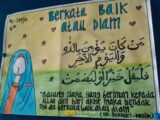 Berkata Baik
atau Diam
مَنْ كَانَ يُؤْمِنُ بِاللهِ
وَالْيَوْمِ الْآخِرِ
فَلْيَقُلْ خَيْرًا أَوْ لِيَصْمُتْ
"Barang siapa yang beriman kepada
Allah dan hari akhir maka hendaklah
dia berkata baik atau diam"
HR. Bukhari-Muslim